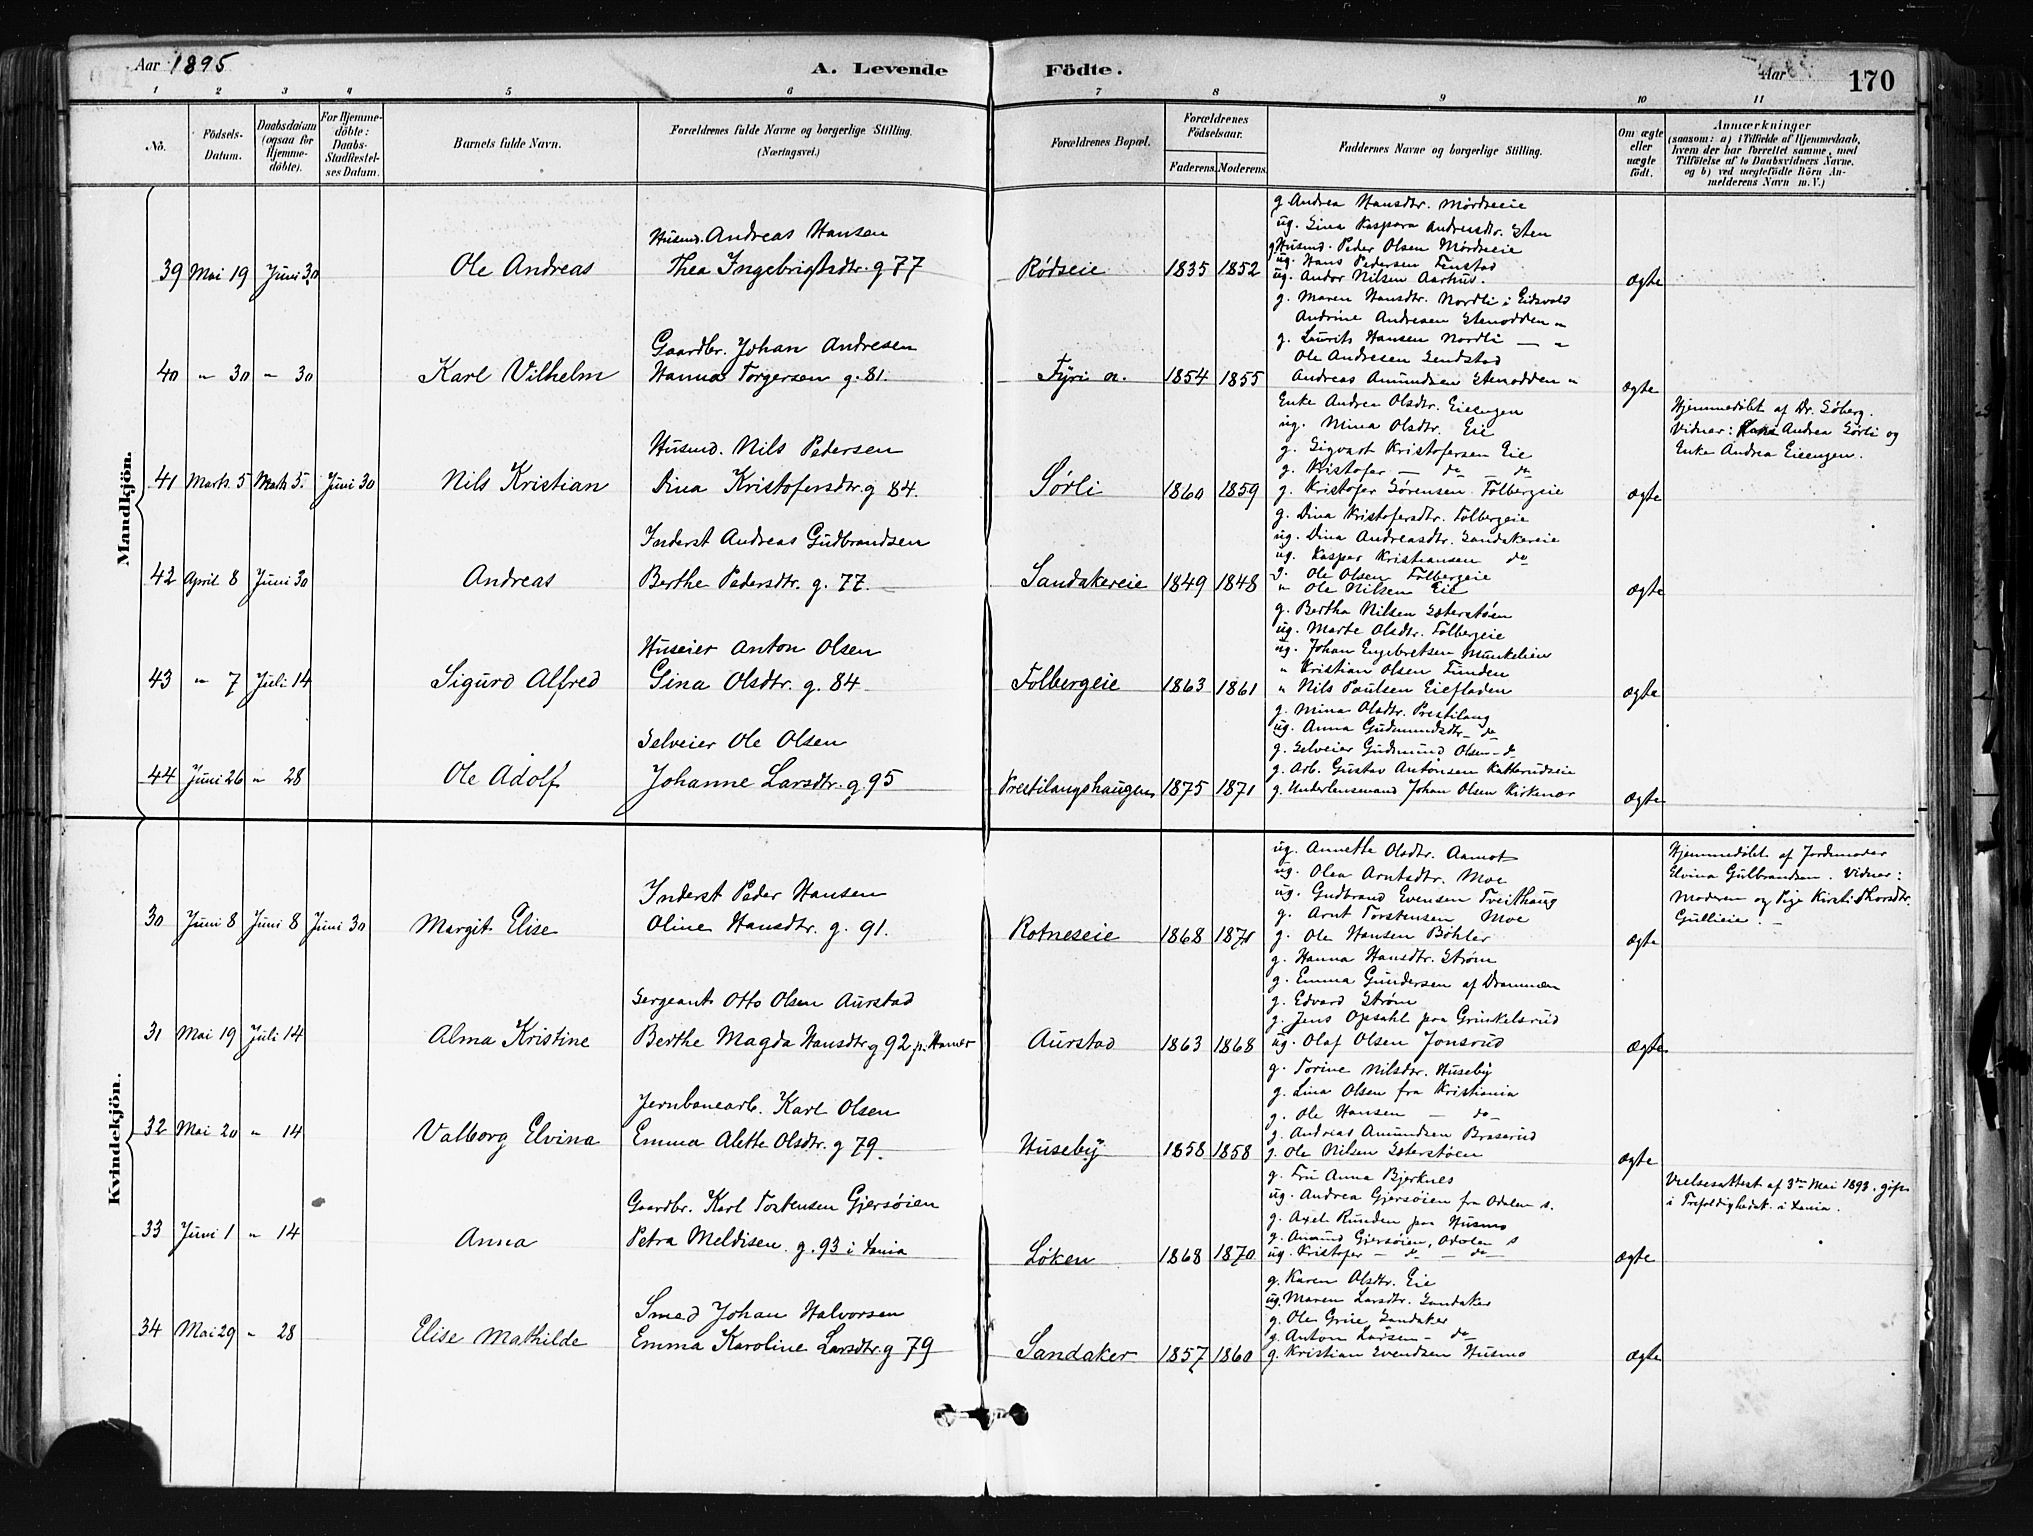 Aar 1895
A. Levende Födte.
Aar
170
1 2 3 4 5 6 7 8 9 10 11
No.
Födsels-Datum.
Daabsdatum (ogsaa for Hjemmedöbte).
For Hjemmedöbte: Daabs-Stadfæstelses Datum.
Barnets fulde Navn.
Forældrenes fulde Navne og borgerlige Stilling.
(Næringsvei.)
Forældrenes Bopæl.
Forældrenes Födselsaar.
Faderens. Moderens.
Faddernes Navne og borgerlige Stilling.
Om ægte eller uægte födt.
Anmærkninger
(saasom: a) i Tilfælde af Hjemmedaab, hvem der har forrettet samme, med Tilföielse af to Daabsvidners Navne, og b) ved uægtefödte Börn Anmelderens Navn m. V.)
Mandkjön.
g. Andrea Hansdtr. Mordseie
ug. Gina Kaspara Andreasdtr. Sten
Husmd. Andreas Hansen
g. Husmd. Peder Olsen Mordseie
ug. Hans Pedersen Finstad
39 Mai 19 Juni 30 Ole Andreas Thea Ingebrigtsdtr. g 77 Rødseie 1835 1852 ug. Andor Nilsen Aarhus. ægte
g. Maren Hansdtr. Nordli i Eidsvold
Andrine Andresen Stenodden "
Gaardbr. Johan Andresen
g. Laurits Hansen Nordli — "
Ole Andresen Sendstad
40 " 30 " 30 Karl Vilhelm Hanna Torgersen g. 81. Fyri n. 1854 1855 Andreas Amundsen Stenodden " ægte
Enke Andrea Olsdtr. Eieengen
ug. Mina Olsdtr. Eie
Husmd. Nils Pedersen
g. Sigvart Kristofersen Eie
g. Kristofer — do — do
41 Marts 5 Marts 5. Juni 30 Nils Kristian Dina Kristofersdtr. g 84. Sørli 1860 1859 g. Kristofer Sørensen Folbergeie ægte
Hjemmedøbt af Dr. Søberg.
Vidner: Andrea Sørli og
Enke Andrea Eieengen.
g. Dina Kristofersdtr. Folbergeie
Inderst Andreas Gudbrandsen
ug. Dina Andreasdtr. Sandakereie
ug. Kaspar Kristiansen do
g. Ole Olsen Folbergeie
42 April 8 Juni 30 Andreas Berthe Pedersdtr. g. 77. Sandakereie 1849 1848 " Ole Nilsen Eie ægte
g. Bertha Nilsen Sæterstøen
ug. Marte Olsdtr. Folbergeie
Huseier Anton Olsen
ug. Johan Engebretsen Munkelien
" Kristian Olsen Funden
43 " 7 Juli 14 Sigurd Alfred Gina Olsdtr. g. 84 Folbergeie 1863 1861 " Nils Paulsen Eiefladen ægte
g. Mina Olsdtr. Prestilang
ug. Anna Gudmundsdtr — do
Selveier Ole Olsen
g. Selveier Gudmund Olsen — d
g. Arb. Gustav Antonsen Katterudseie
44 Juni 26 " 28 Ole Adolf Johanne Larsdtr. g. 95 Prestilangshaugen 1875 1871 g. Underlensmand Johan Olsen Kirkemo ægte
Kvindekjön.
ug. Annette Olsdtr. Aamot
ug. Olea Arntsdtr. Moe
Inderst Peder Hansen
ug. Gudbrand Evensen Tveithaug
g. Arnt Torstensen Moe
30 Juni 8 Juni 8 Juni 30 Margit Elise Oline Hansdtr. g. 91. Rotneseie 1868 1871 g. Ole Hansen Bøhler ægte
Hjemmedøbt af Jordmoder
Elvina Gulbrandsen. Vidner:
Moderen og Pige Kirsti Thorsdtr.
Gullieie. —
g. Hanna Hansdtr. Strøm
g. Emma Gundersen af Drammen
Sergeant Otto Olsen Aurstad
g. Edvard Strøm
g. Jens Opsahl paa Grinkelsrud
31 Mai 19 Juli 14 Alma Kristine Berthe Magda Hansdtr g 92 p. Hamar Aurstad 1863 1868 ug. Olaf Olsen Jonsrud ægte
g. Torine Nilsdtr. Huseby
g. Lina Olsen fra Kristiania
Jernbanearb. Karl Olsen
g. Ole Hansen — do
g. Andreas Amundsen Braserud
32 Mai 20 " 14 Valborg Elvina Emma Alette Olsdtr. g 79. Huseby 1858 1858 g. Ole Nilsen Sæterstøen ægte
g. Fru Anna Bjerknes
ug. Andrea Gjersøien fra Odalen s.
Gaardbr. Karl Torstensen Gjersøien
g. Axel Runden paa Husmo
g. Amund Gjersøien, Odalen s
33 Juni 1 " 14 Anna Petra Meldisen. g. 93 i Xania Løken 1868 1870 ug. Kristofer — do — do ægte
Vielsesattest af 3die Mai 1893. gift
i Trefoldighedsk. i Xania.
g. Karen Olsdtr. Eie
ug. Maren Larsdtr. Sandaker
Smed Johan Halvorsen
g. Ole Grue Sandaker
g. Anton Larsen — do
34 Mai 29 " 28 Elise Mathilde Emma Karoline Larsdtr g 79 Sandaker 1857 1860 g. Kristian Svendsen Husmo ægte